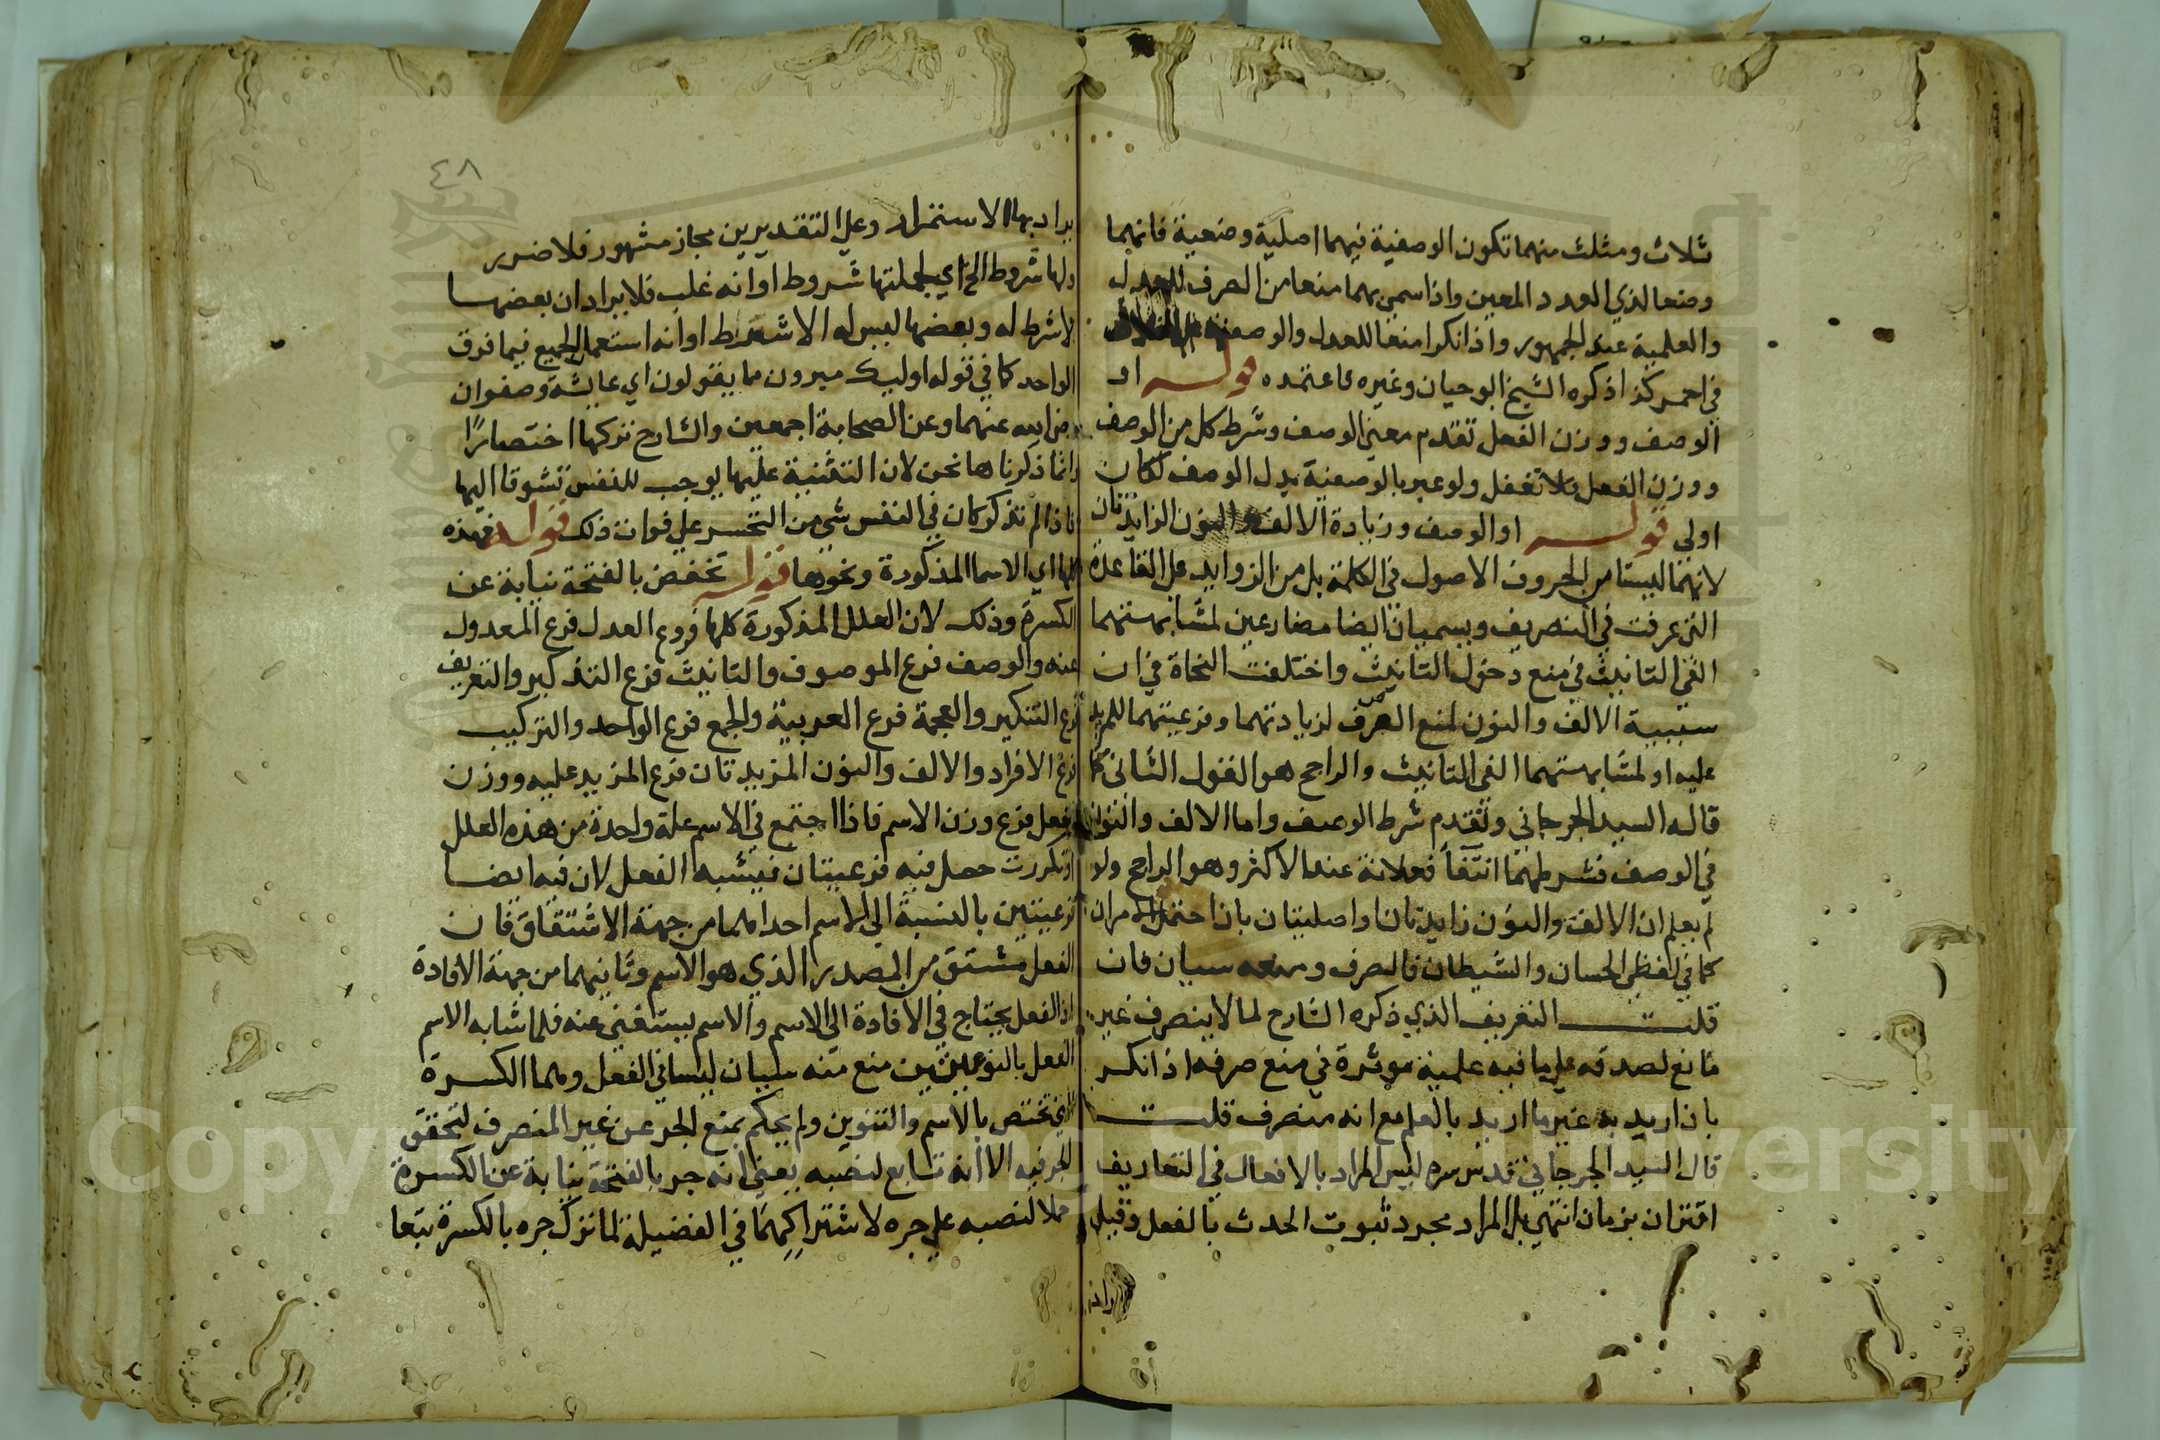 ثلاث ومثلث منهما تكون الوصفية فيهما اصلية وضعية فانهما
وضعا لذي العدد المعين واذا سمي بهما منعا من الصرف للعدل
والعلمية عند الجمهور واذا نكرا منعا للعدل والوصفية
في احمر كذا ذكره الشيخ ابو حيان وغيره فاعتمده قوله او
الوصف ووزن الفعل تقدم معنى الوصف وشرط كل من الوصف
ووزن الفعل فلا تغفل ولو عبر بالوصفية بدل الوصف لكان
اولى قوله او الوصف وزيادة الالف والنون الزايدتان
لانهما ليستا من الحروف الاصول في الكلمة بل من الزوايد على القاعدة
التي عرفت في التصريف ويسميان ايضا مضارعين لمشابهتهما
الفي التانيث في منع دخول التانيث واختلفت النحاة في ان
سببية الالف والنون لمنع الصرف لزيادتهما وفرعيتهما للمزيد
عليه او لمشابهتهما الفي التانيث والراجح هو القول الثاني كما
قاله السيد الجرجاني وتقدم شرط الوصف واما الالف والنون
في الوصف فشرطهما انتفا فعلانة عند الاكثر وهو الراجح ولو
لم يعلم ان الالف والنون زايدتان او اصليتان بان احتمل الامران
كما في لفظي الحسان والشيطان فالصرف ومنعه سيان فان
قلت التعريف الذي ذكره الشارح لما لا ينصرف غير
مانع لصدقه على ما فيه علمية موثرة في منع صرفه اذا نكر
بان اريد به غير ما اريد بالعلم مع انه منصرف قلت
قال السيد الجرجاني قدس سره ليس المراد بالافعال في التعاريف
اقتران بزمان انتهى بل المراد مجرد ثبوت الحدث بالفعل وقيل
٤٨
يراد بها الاستمرار وعلى التقديرين مجاز مشهور فلا ضرر
ولها شروط الخ اي لجملتها شروط او انه غلب فلا يراد ان بعضها
لا شرط له وبعضها ليس له الا شرط او انه استعمل الجميع فيما فوق
الواحد كما في قوله اوليك مبرون مما يقولون اي عايشة وصفوان
رضي الله عنهما وعن الصحابة اجمعين والشارح تركها اختصارًا
وانما ذكرناها نحن لان التثنية عليها يوجب للنفس تشوقا اليها
فاذا لم تذكر كان في النفس شي من التحسر على فوات ذلك قوله فهذه
كلها اي الاسما المذكورة ونحوها قوله تخفض بالفتحة نيابة عن
الكسرة وذلك لان العلل المذكورة كلها فروع العدل فرع المعدول
عنه والوصف فرع الموصوف والتانيث فرع التذكير والتعريف
فرع التنكير والعجمة فرع العربية والجمع فرع الواحد والتركيب
فرع الافراد والالف والنون المزيدتان فرع المزيد عليه ووزن
الفعل فرع وزن الاسم فاذا اجتمع في الاسم علة واحدة من هذه العلل
او تكررت حصل فيه فرعيتان فيشبه الفعل لان فيه ايضا
فرعيتين بالنسبة الى الاسم احداهما من جهة الاشتقاق فان
الفعل مشتق من المصدر الذي هو الاسم وثانيهما من جهة الافادة
اذ الفعل يحتاج في الافادة الى الاسم والاسم يستغني عنه فلما شابه الاسم
الفعل بالنوعين منع منه شيئان ليسا في الفعل وهما الكسرة
التي تختص بالاسم والتنوين ولم يحكم بمنع الجر عن غير المنصرف لتحقق
الجر فيه الا انه تابع لنصبه يعني انه جر بالفتحة نيابة عن الكسرة
حملا لنصبه على جره لاشتراكهما في الفضيلة لما ترك جره بالكسرة تبعا